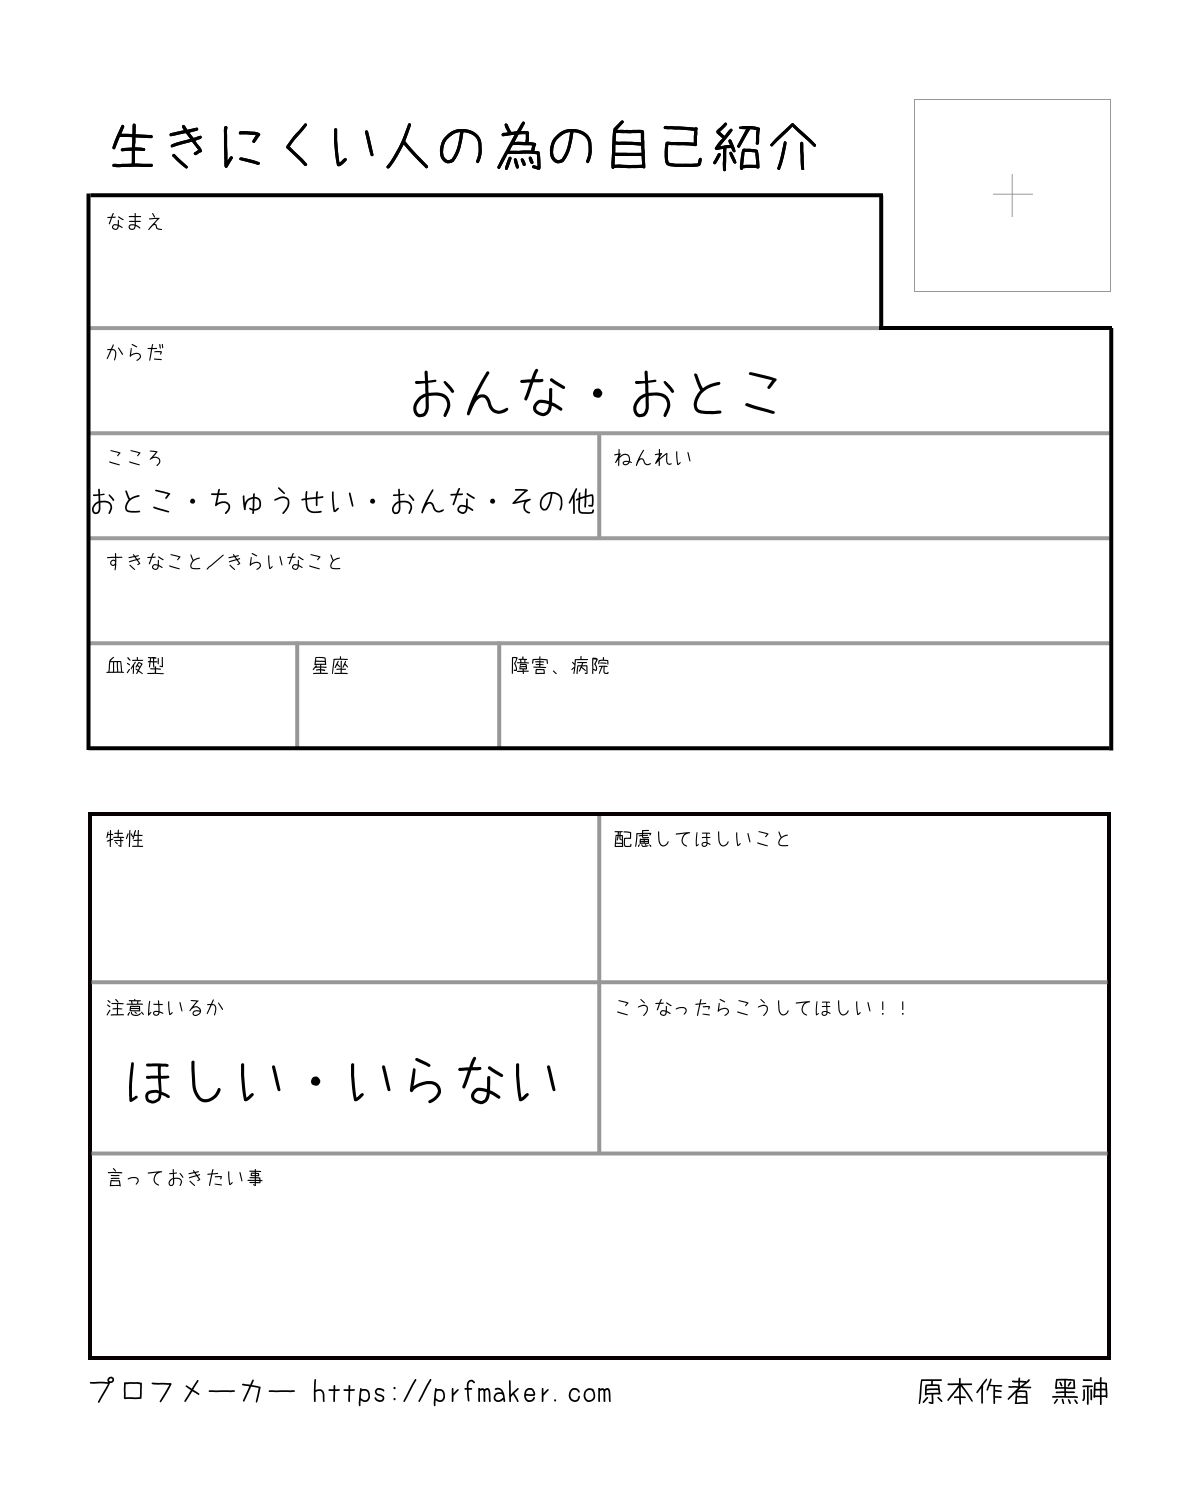 生きにくい人の為の自己紹介
なまえ
からだ
おんな・おとこ
こころ
おとこ・ちゅうせい・おんな・その他
ねんれい
すきなこと／きらいなこと
血液型
星座
障害、病院
特性
配慮してほしいこと
注意はいるか
ほしい・いらない
こうなったらこうしてほしい！！
言っておきたい事
プロフメーカー https://prfmaker.com
原本作者 黒神